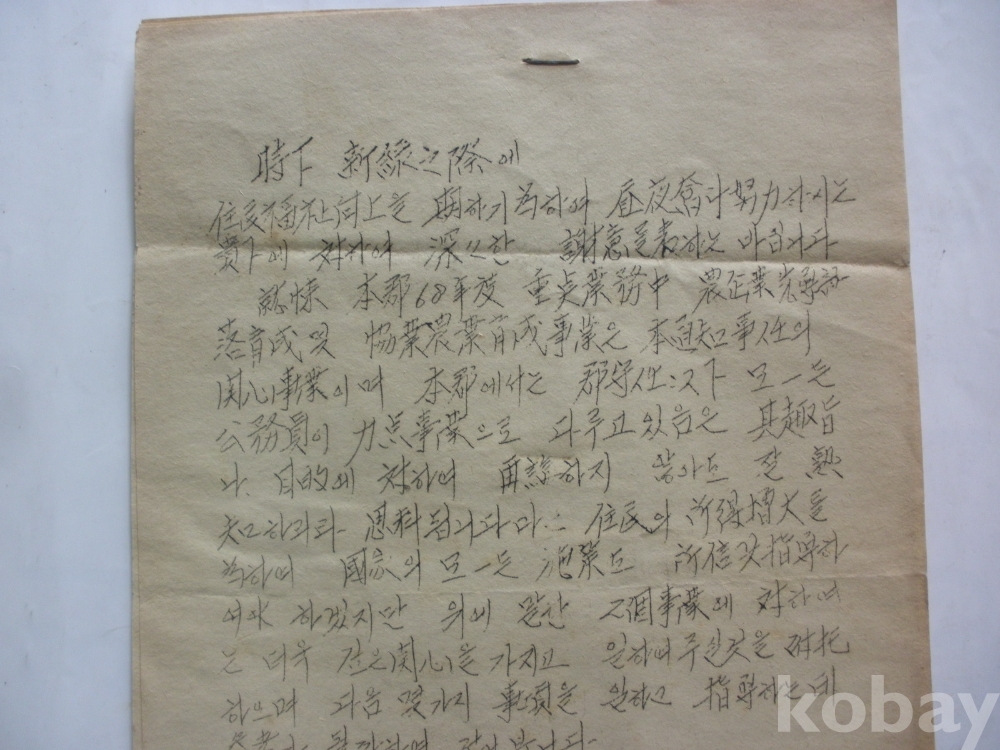 時下 新綠之際에
住民福祉向上을 期하기 爲하여 晝夜 努力하시는
貴下에 對하여 深深한 謝意를 表하는 바입니다
就悚 本郡 68年度 重点業務中 農 業
落育成 및 協業農業育成事業은 本道知事任의
関心事業이며 本郡에서는 郡守任以下 모-든
公務員이 力点事業으로 다루고 있음은 其趣旨
나 目的에 對하여 再 하지 않아도 잘 熟
知하리라 思料됩니다마는 住民의 所得增大를
爲하여 國家의 모-든 業도 所信것 指導하
여야 하겠지만 위에 말한 2個事業에 對하여
는 더욱 깊은 関心을 가지고 일하여 주실것을 付托
하으며 다음 몇가지 事項을 일하고 指導하는데
kobay